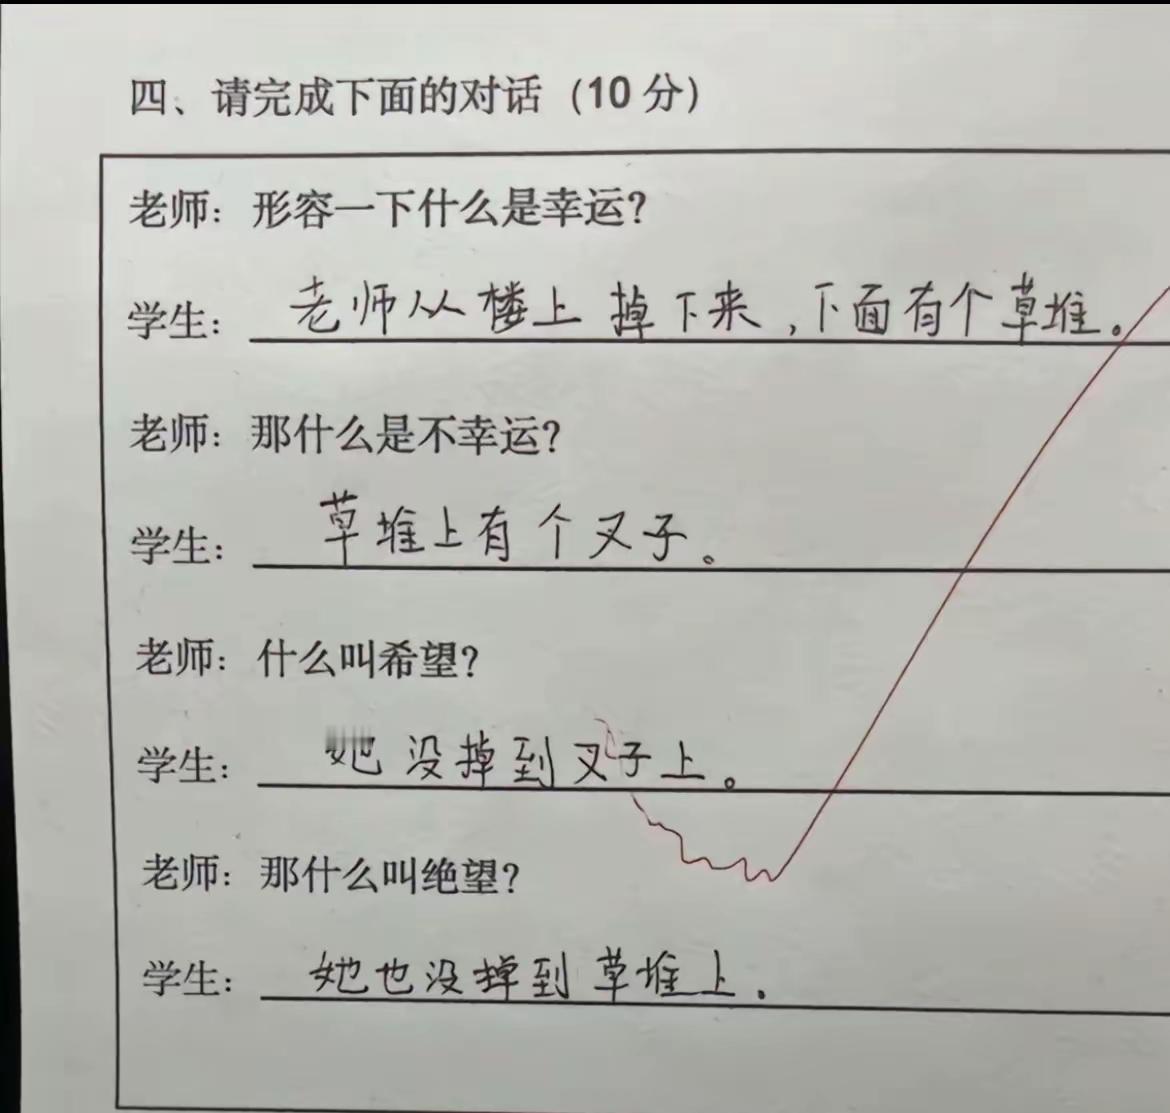 四、请完成下面的对话（10 分）
老师：形容一下什么是幸运？
学生：老师从楼上掉下来，下面有个草堆。
老师：那什么是不幸运？
学生：草堆上有个叉子。
老师：什么叫希望？
学生：她没掉到叉子上。
老师：那什么叫绝望？
学生：她也没掉到草堆上．